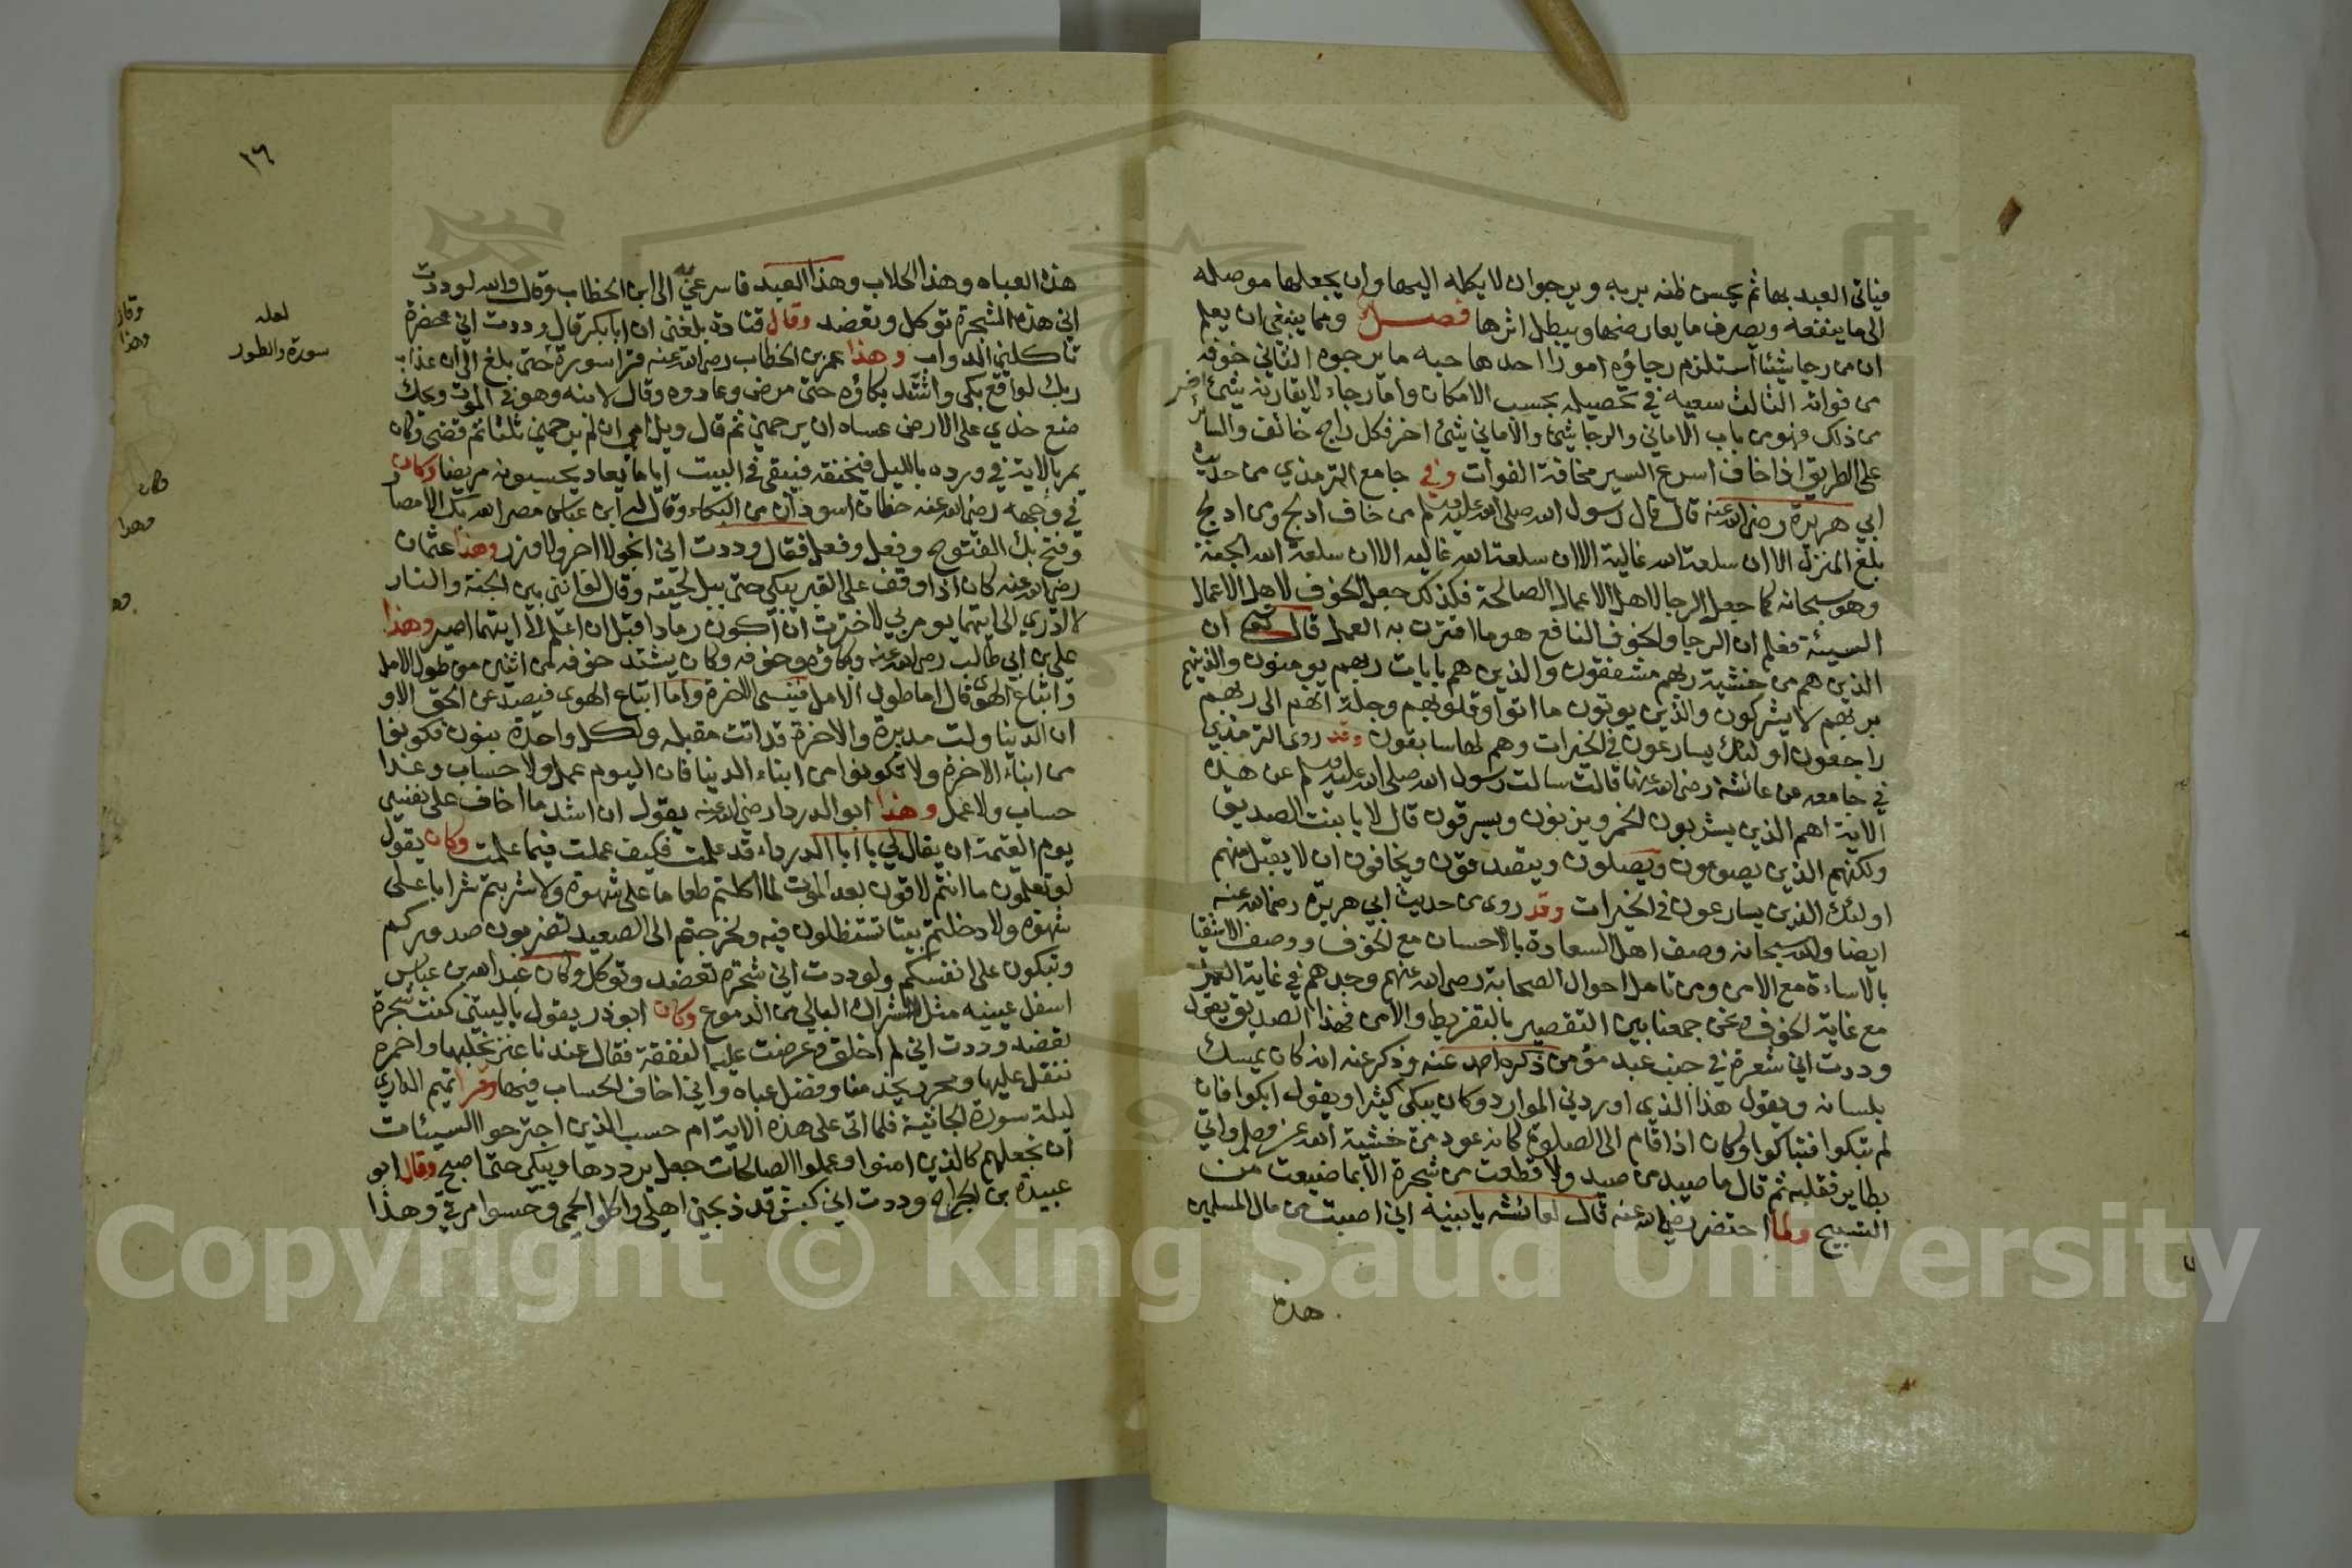 فياتي العبد بها ثم يحسن ظنه بربه ويرجو ان لا يكله اليها وان يجعلها موصله
الى ما ينفعه ويصرف ما يعارضها ويبطل اثرها فصل ومما ينبغي ان يعلم
ان من رجا شيئا استلزم رجاؤه امورا احدها حبه ما يرجوه الثاني خوفه
من فواته الثالث سعيه في تحصيله بحسب الامكان واما رجاء لا يقارنه شيئ
من ذلك فهو من باب الاماني والرجا شيئ والاماني شيئ اخر فكل راج خائف والسائر
على الطريق اذا خاف اسرع السير مخافة الفوات وفي جامع الترمذي من حديث
ابي هريرة رضي الله عنه قال قال رسول الله صلى الله عليه وسلم من خاف ادلج ومن ادلج
بلغ المنزل الا ان سلعة الله غالية الا ان سلعة الله غاليه الا ان سلعة الله الجنة
وهو سبحانه كما جعل الرجا لاهل الاعمال الصالحة فكذلك جعل الخوف لاهل الاعمال
السيئة فعلم ان الرجا والخوف النافع هو ما اقترن به العمل قال تعالى ان
الذين هم من خشية ربهم مشفقون والذين هم بايات ربهم يومنون والذين هم
بربهم لا يشركون والذين يوتون ما اتوا وقلوبهم وجلة انهم الى ربهم
راجعون اولئك يسارعون في الخيرات وهم لها سابقون وقد روى الترمذي
في جامعه عن عائشة رضي الله عنها قالت سالت رسول الله صلى الله عليه وسلم عن هذه
الاية اهم الذين يشربون الخمر ويزنون ويسرقون قال لا يا بنت الصديق
ولكنهم الذين يصومون ويصلون ويتصدقون ويخافون ان لا يقبل منهم
اولئك الذين يسارعون في الخيرات وقد روى من حديث ابي هريرة رضي الله عنه
ايضا والله سبحانه وصف اهل السعادة بالاحسان مع الخوف ووصف الاشقيا
بالاساءة مع الامن ومن تامل احوال الصحابة رضي الله عنهم وجدهم في غاية العمل
مع غاية الخوف ونحن جمعنا بين التقصير بالتفريط والامن فهذا الصديق يقول
وددت اني شعرة في جنب عبد مؤمن ذكره احمد عنه وذكر عنه انه كان يمسك
بلسانه ويقول هذا الذي اوردني الموارد وكان يبكي كثيرا ويقول ابكوا فان
لم تبكوا فتباكوا وكان اذا قام الى الصلوة كانه عود من خشية الله عز وجل واتي
بطاير فقلبه ثم قال ما صيد من صيد ولا قطعت من شجرة الا بما ضيعت من
التسبيح ولما احتضر رضي الله عنه قال لعائشه يا بنيه اني اصبت من مال المسلمين
هذه
١٦
هذه العباه وهذا الحلاب وهذا العبد فاسرعي به الى ابن الخطاب وقال والله لوددت
اني هذه الشجرة توكل وتعضد وقال قتادة بلغني ان ابا بكر قال وددت اني خضرة
تاكلني الدواب وهذا عمر بن الخطاب رضي الله عنه قرا سورة حتى بلغ الى ان عذاب
لعله
سورة والطور
ربك لواقع بكى واشتد بكاؤه حتى مرض وعادوه وقال لابنه وهو في الموت ويحك
ضع خدي على الارض عساه ان يرحمني ثم قال ويل امي ان لم يرحمني ثلثا ثم قضى وكان
يمر بالاية في ورده بالليل فتخنقه فيبقى في البيت اياما يعاد يحسبونه مريضا وكان
في وجهه رضي الله عنه خطان اسودان من البكاء وقال له ابن عباس مصر الله بك الامصار
وفتح بك الفتوح وفعل وفعل فقال وددت اني انجو لا اجر ولا وزر وهذا عثمان
رضي الله عنه كان اذا وقف على القبر يبكي حتى يبل لحيته وقال لو انني بين الجنة والنار
لا ادري الى ايتهما يومر بي لاخترت ان اكون رمادا قبل ان اعلم الى ايتهما اصير وهذا
علي بن ابي طالب رضي الله عنه وبكاؤه وخوفه وكان يشتد خوفه من اثنين من طول الامل
واتباع الهوى قال اما طول الامل فينسى الاخرة واما اتباع الهوى فيصد عن الحق الا و
ان الدنيا ولت مدبرة والاخرة قد اتت مقبله ولكل واحدة بنون فكونوا
من ابناء الاخرة ولا تكونوا من ابناء الدنيا فان اليوم عمل ولا حساب وغدا
حساب ولا عمل وهذا ابو الدرداء رضي الله عنه يقول ان اشد ما اخاف على نفسي
يوم القيمة ان يقال لي يا ابا الدرداء قد علمت فكيف عملت فيما علمت وكان يقول
لو تعلمون ما انتم لاقون بعد الموت لما اكلتم طعاما على شهوة ولا شربتم شرابا على
شهوة ولا دخلتم بيتا تستظلون فيه ولخرجتم الى الصعيد تضربون صدوركم
وتبكون على انفسكم ولوددت اني شجرة تعضد وتوكل وكان عبد الله بن عباس
اسفل عينيه مثل الشراك البالي من الدموع وكان ابو ذر يقول يا ليتني كنت شجرة
تعضد وددت اني لم اخلق وعرضت عليه النفقة فقال عندنا عنز نحلبها واحمره
ننقل عليها ومحرر يخدمنا وفضل عباه واني اخاف الحساب فيها وقرا تميم الداري
ليلة سورة الجاثية فلما اتى على هذه الاية ام حسب الذين اجترحوا السيئات
ان نجعلهم كالذين امنوا وعملوا الصالحات جعل يرددها ويبكي حتى اصبح وقال ابو
عبيدة بن الجراح وددت اني كبش فذبحني اهلي واكلوا لحمي وحسوا مرقي وهذا
وقال
وهذا
وكان
وهذا
Copyright © King Saud University